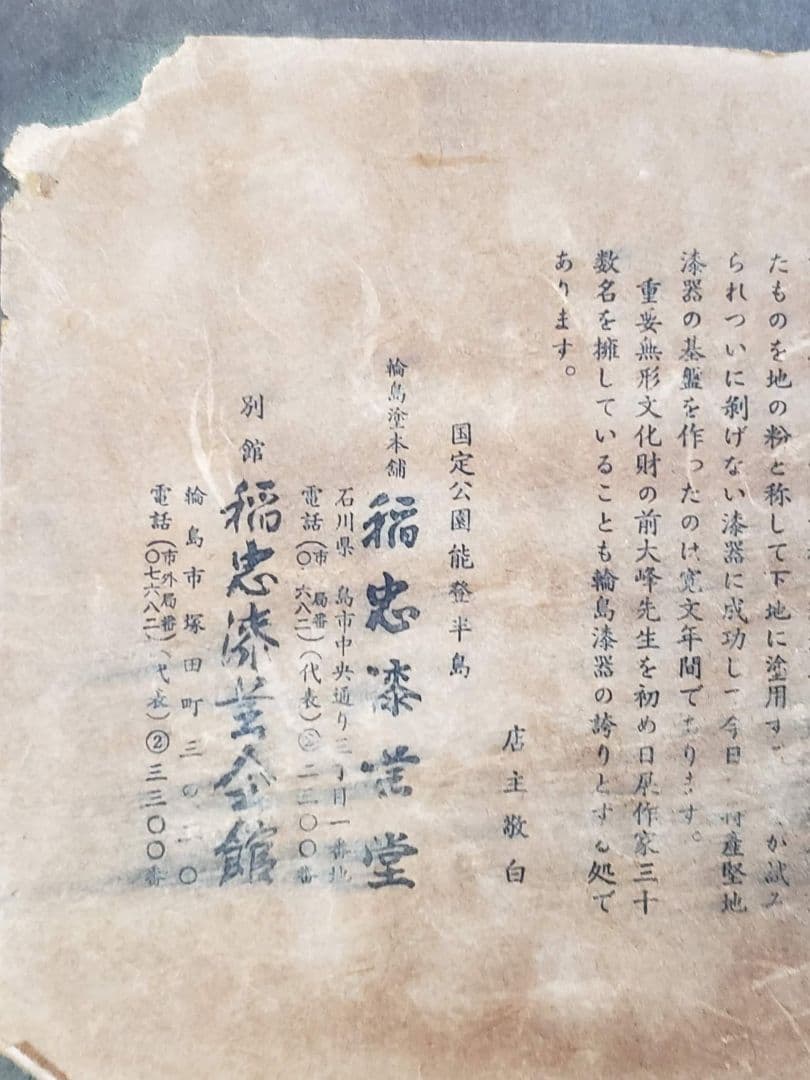 たものを地の粉と称して下地に塗用す が試み
られついに剥げない漆器に成功して今日 特産堅地
漆器の基盤を作ったのは寛文年間であります。
重要無形文化財の前大峰先生を初め日展作家三十
数名を擁していることも輪島漆器の誇りとする処で
あります。
店主敬白
国定公園能登半島
輪島塗本舗 稲忠漆芸堂
石川県 島市中央通り三丁目一番地
電話(市 局番〇 六八二)(代表)② 二三〇〇番
別館 稲忠漆芸会館
輪島市塚田町三の 〇
電話(市外局番〇七六八二)(代表)②三三〇〇番